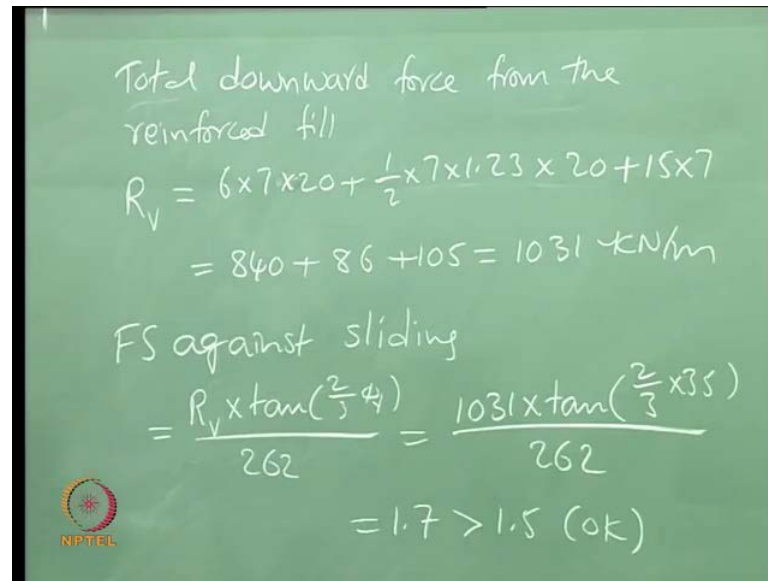 Total downward force from the
reinforced fill
R_v = 6×7×20 + 1/2 ×7×1.23 × 20 + 15×7
= 840 + 86 + 105 = 1031 kN/m
FS against sliding
= R_v × tan(2/3 φ) / 262 = 1031 × tan(2/3 ×35) / 262
= 1.7 > 1.5 (OK)
NPTEL